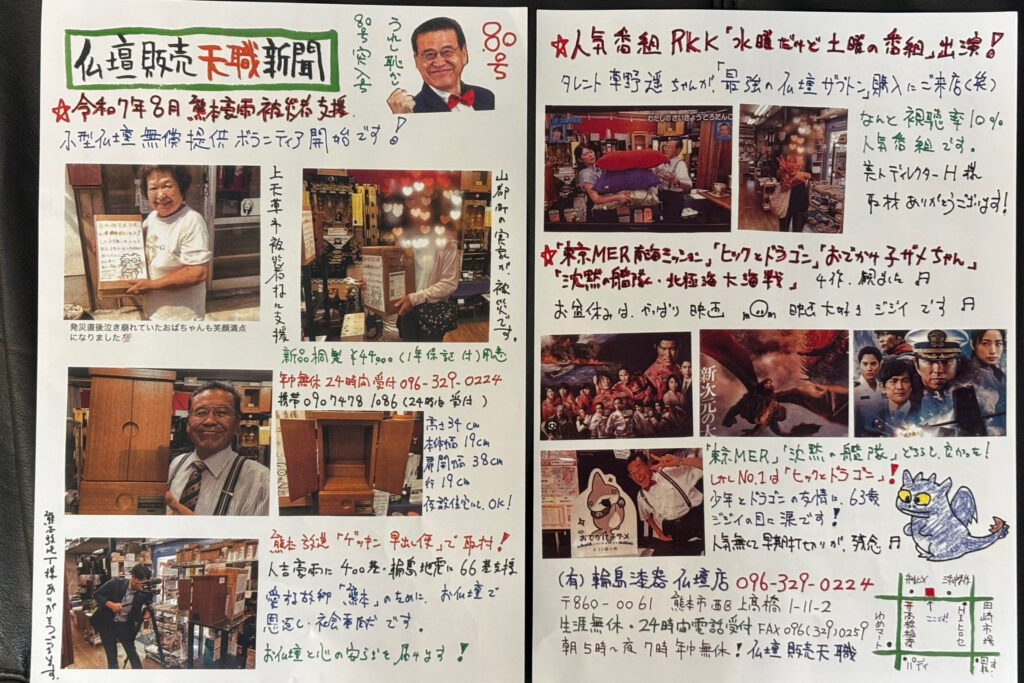 仏壇販売天職新聞
うれし恥かし
80号突入号
80号
☆令和7年8月熊本豪雨被災者支援
小型仏壇無償提供ボランティア開始です!
上天草市被災者様に支援
山都町の実家が被災です。
発災直後泣き崩れていたおばちゃんも笑顔満点
になりました
新品桐製¥44000(1年保証付)用意
年中無休24時間受付096-329-0224
携帯09074781086(24時間受付)
高さ34cm
本体幅19cm
扉開幅38cm
行19cm
仮設住宅にも、OK!
熊本放送「ゲツキン早出し便」で取材!
人吉豪雨に400基・輪島地震に66基支援
愛する故郷「熊本」のために、お仏壇で
恩返し・社会貢献です。
お仏壇と心の安らぎを届けます!
☆人気番組RKK「水曜だけど土曜の番組」出演!
タレント草野遥ちゃんが「最強の仏壇ザブトン」購入にご来店(笑)
わたしのさいきょうどろだんご
なんと視聴率10%
人気番組です。
美人ディレクターH様
取材ありがとうございます!
☆「東京MER南海ミッション」「ヒックとドラゴン」「おでかけ子ザメちゃん」
「沈黙の艦隊・北極海大海戦」4作、観ました♬
お盆休みは、やっぱり映画 映画大好きジジイです♬
新次元の
おでかけ子ザメ
「東京MER」「沈黙の艦隊」どちらも良かった!
しかしNo.1は「ヒックとドラゴン」!
少年とドラゴンの友情に、63歳
ジジイの目に涙です!
人気無くて早期打切りが、残念♬
(有)輪島漆器仏壇店 096-329-0224
〒860-0061 熊本市西区上高橋1-11-2
生涯無休・24時間電話受付FAX096(329)0259
朝5時~夜7時年中無休!仏壇販売天職
ここだよ!
ヒロセ
田崎市場
ゆめマート